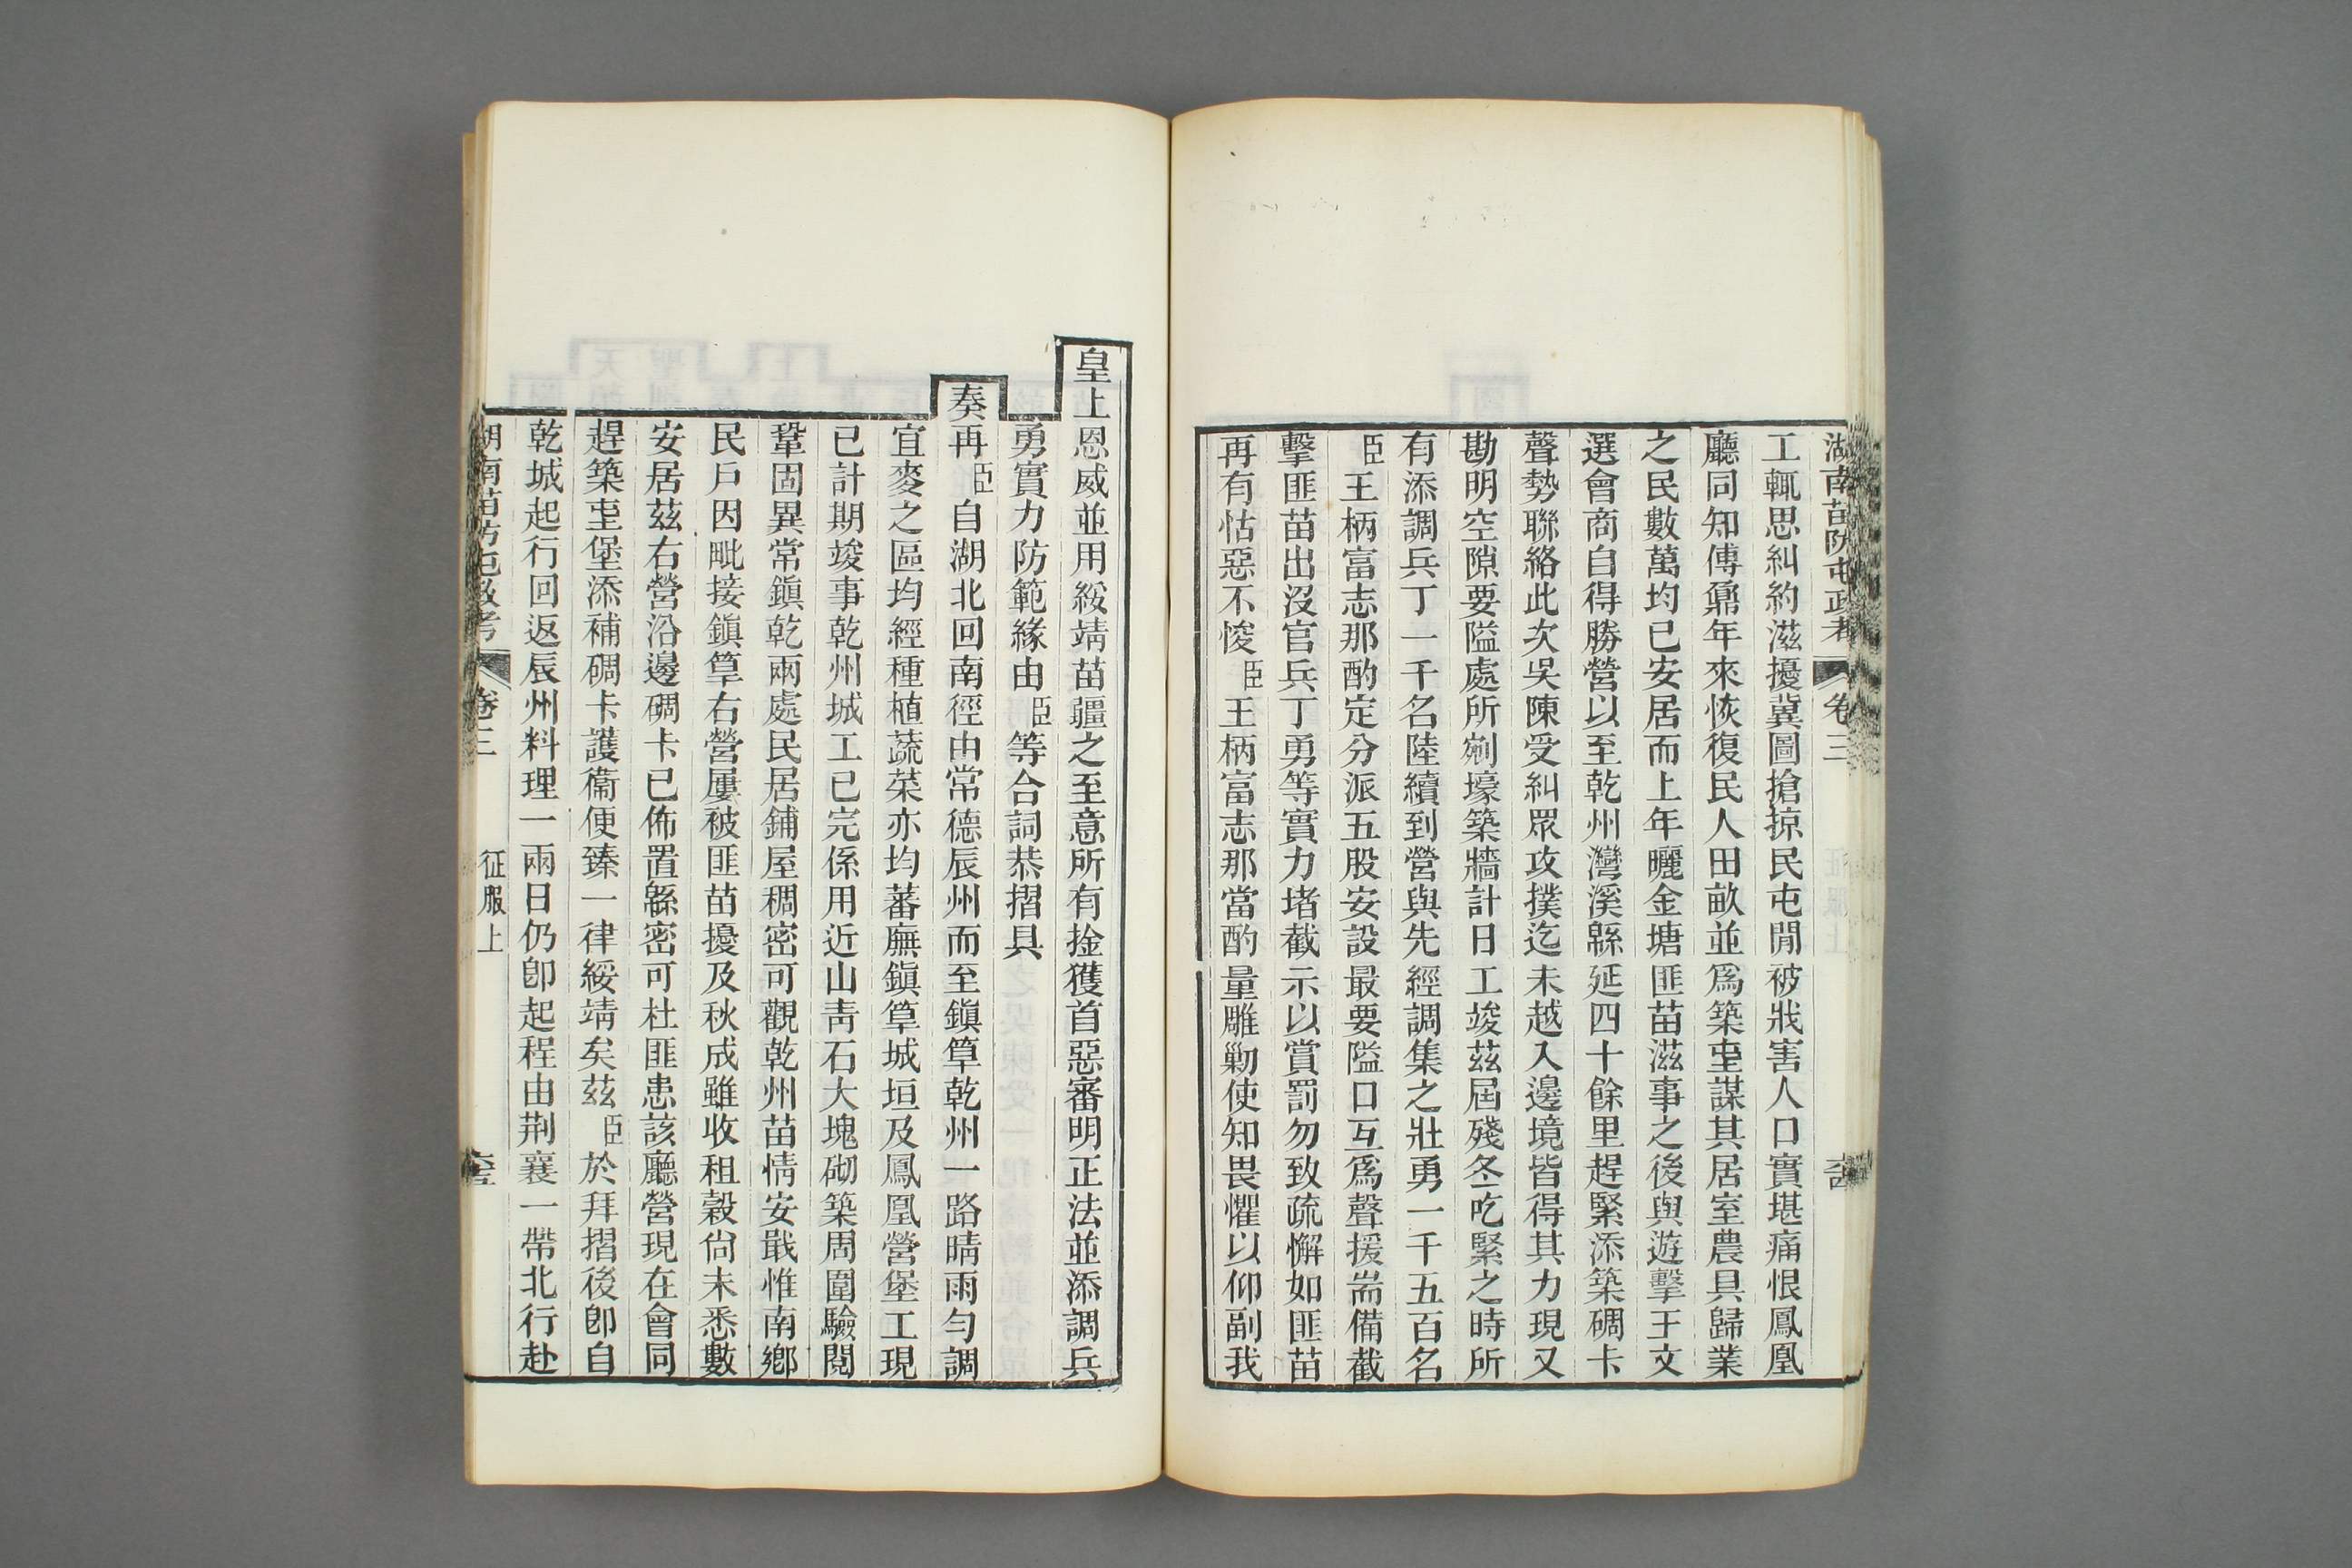 湖南苗防屯政考 卷三
工輒思糾約滋擾冀圖搶掠民屯閒被戕害人口實堪痛恨鳳凰
廳同知傅鼐年來恢復民人田畝並爲築堡謀其居室農具歸業
之民數萬均已安居而上年曬金塘匪苗滋事之後與遊擊王文
選會商自得勝營以至乾州灣溪緜延四十餘里趕緊添築碉卡
聲勢聯絡此次吳陳受糾眾攻撲迄未越入邊境皆得其力現又
勘明空隙要隘處所剜壕築牆計日工竣茲屆殘冬吃緊之時所
有添調兵丁一千名陸續到營與先經調集之壯勇一千五百名
臣王柄富志那酌定分派五股安設最要隘口互爲聲援耑備截
擊匪苗出沒官兵丁勇等實力堵截示以賞罰勿致疏懈如匪苗
再有怙惡不悛臣王柄富志那當酌量雕勦使知畏懼以仰副我
皇上恩威並用綏靖苗疆之至意所有捡獲首惡審明正法並添調兵
勇實力防範緣由臣等合詞恭摺具
奏再臣自湖北回南徑由常德辰州而至鎭筸乾州一路晴雨勻調
宜麥之區均經種植蔬菜亦均蕃廡鎭筸城垣及鳳凰營堡工現
已計期竣事乾州城工已完係用近山靑石大塊砌築周圍驗閱
鞏固異常鎭乾兩處民居鋪屋稠密可觀乾州苗情安戢惟南鄕
民戶因毗接鎭筸右營屢被匪苗擾及秋成雖收租穀尙未悉數
安居茲右營沿邊碉卡已佈置緜密可杜匪患該廳營現在會同
趕築堡堡添補碉卡護衞便臻一律綏靖矣茲臣於拜摺後卽自
乾城起行回返辰州料理一兩日仍卽起程由荆襄一帶北行赴
湖南苗防屯政考 卷三 征服上